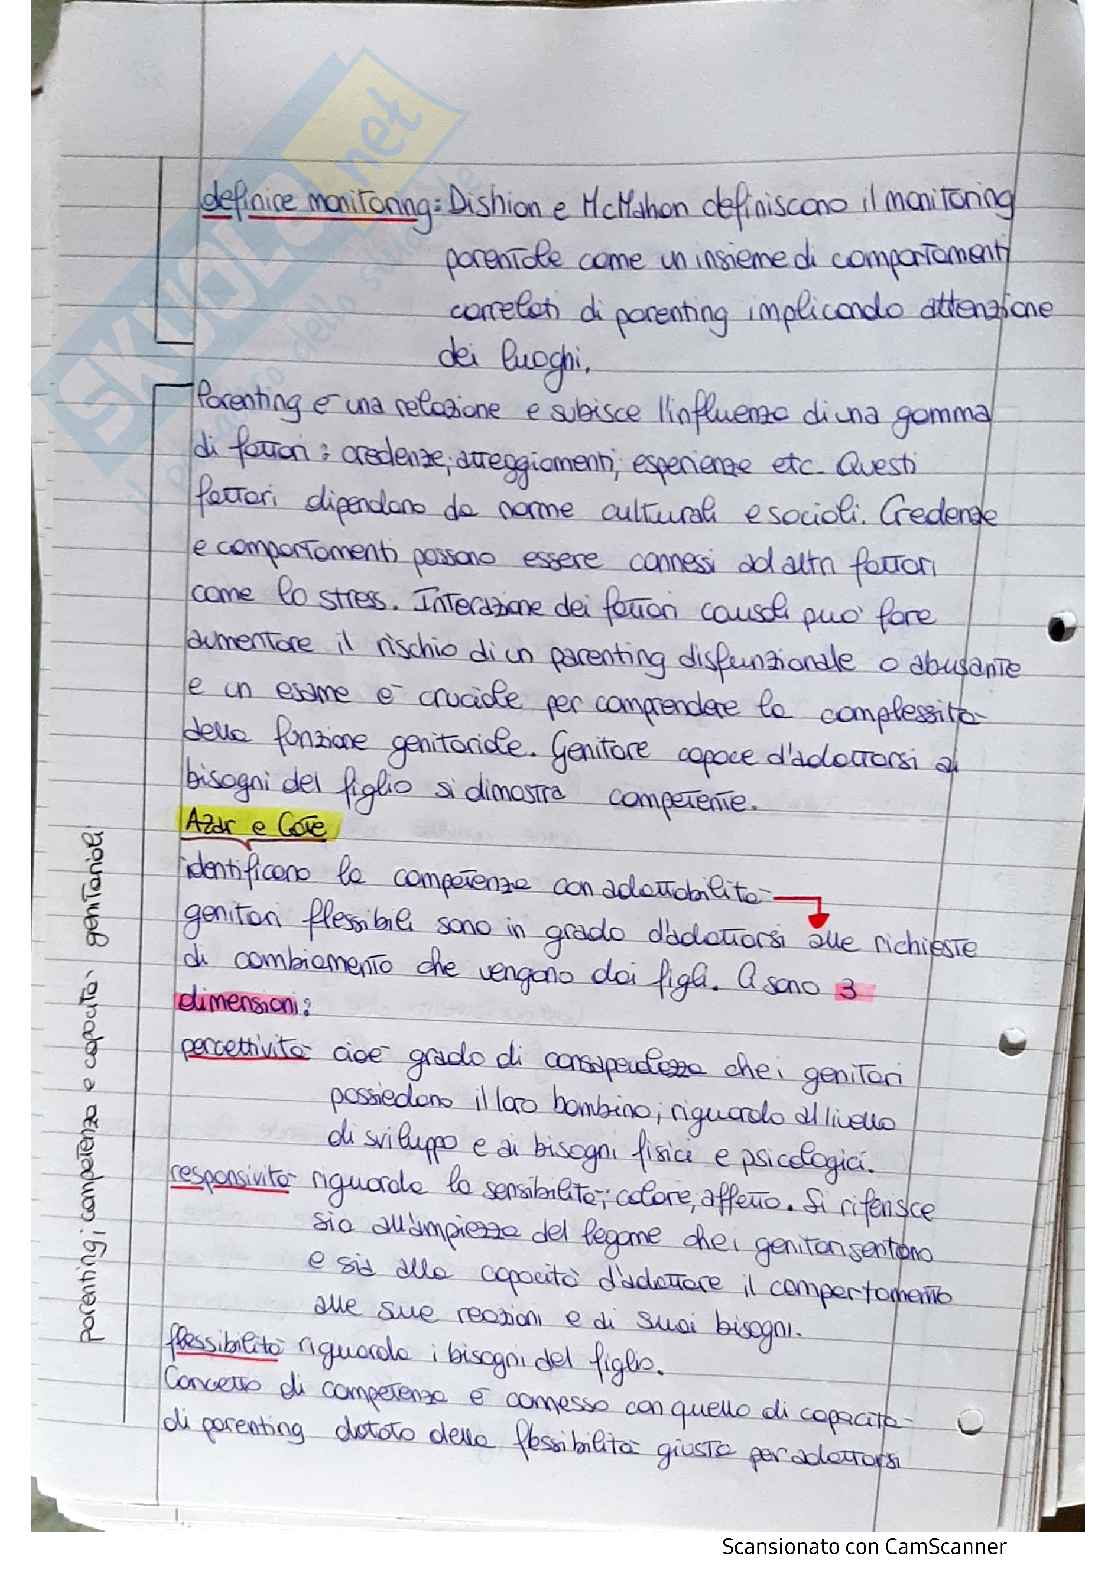 definire monitoring: Dishion e McMahon definiscono il monitoring
parentale come un insieme di comportamenti
correlati di parenting implicando attenzione
dei luoghi.
Parenting è una relazione e subisce l'influenza di una gamma
di fattori: credenze, atteggiamenti, esperienze etc. Questi
fattori dipendono da norme culturali e sociali. Credenze
e comportamenti possono essere connessi ad altri fattori
come lo stress. Interazione dei fattori causali può fare
aumentare il rischio di un parenting disfunzionale o abusante
e un esame è cruciale per comprendere la complessità
della funzione genitoriale. Genitore capace d'adattarsi ai
bisogni del figlio si dimostra competente.
Azar e Cote
identificano la competenza con adattabilità
genitori flessibili sono in grado d'adattarsi alle richieste
di cambiamento che vengono dai figli. Ci sono 3
dimensioni:
percettività cioè grado di consapevolezza che i genitori
possiedono il loro bambino, riguardo al livello
di sviluppo e ai bisogni fisici e psicologici.
responsività riguarda la sensibilità, calore, affetto. Si riferisce
sia all'ampiezza del legame che i genitori sentono
e sia alla capacità d'adattare il comportamento
alle sue reazioni e ai suoi bisogni.
flessibilità riguarda i bisogni del figlio.
Concetto di competenza è connesso con quello di capacità
di parenting dotato della flessibilità giusta per adattarsi
parenting, competenza e capacità genitoriali
SKUOLA.net
Scansionato con CamScanner